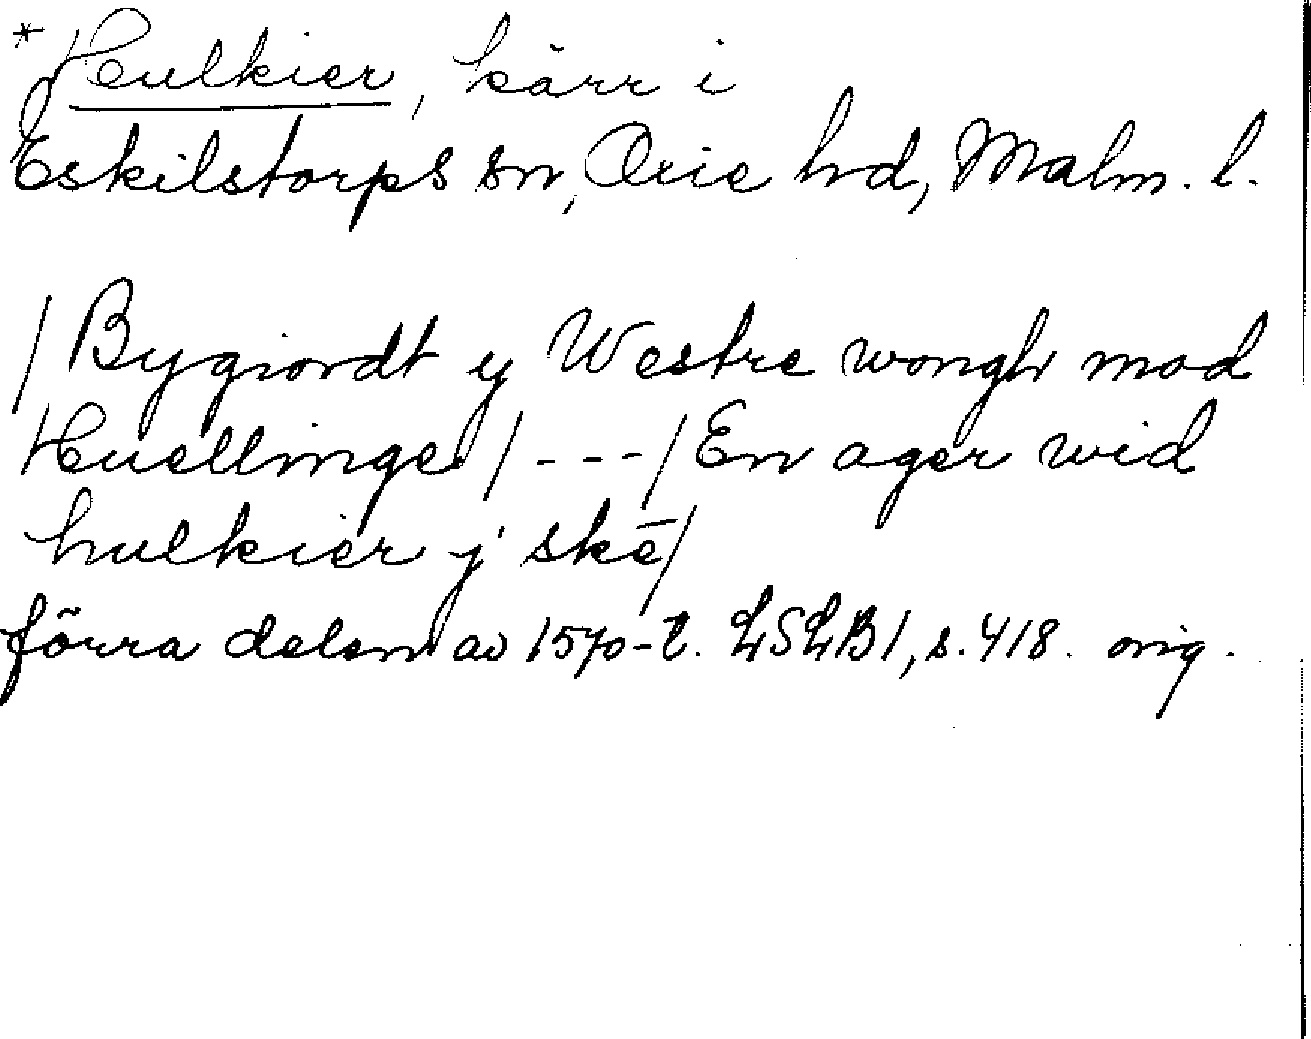 *Hulkier, kärr i
Eskilstorps sn, Oxie hd, Malm. l.
/Bygiordt y Westre wongh mod
Huellinge/---/En ager wid
hulkier y skē/
förra delen av 1570-t. LSLB1, s. 418. orig.